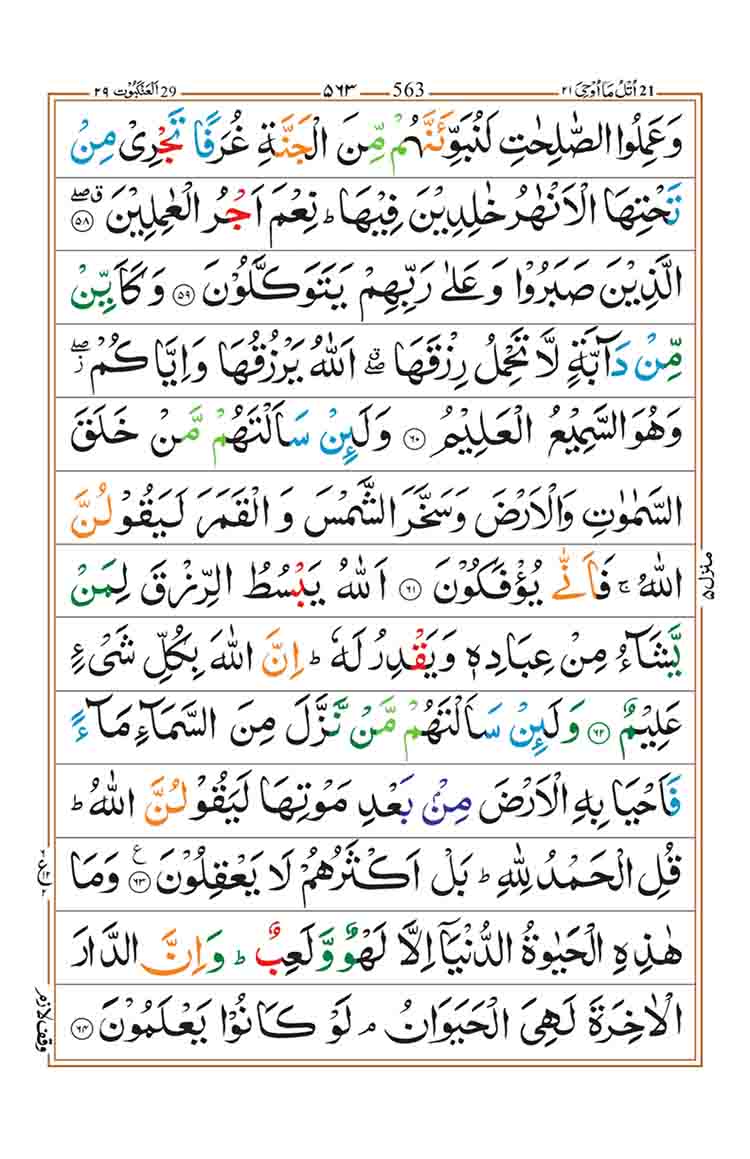 21 اُتْلُ مَا اُوْحِیَ ۲۱
563 ۵۶۳
29 اَلْعَنْكَبُوْت ۲۹
وَعَمِلُوا الصّٰلِحٰتِ لَنُبَوِّئَنَّهُمْ مِّنَ الْجَنَّةِ غُرَفًا تَجْرِیْ مِنْ
تَحْتِهَا الْاَنْهٰرُ خٰلِدِیْنَ فِیْهَا ؕ نِعْمَ اَجْرُ الْعٰمِلِیْنَ ۖۗ ۵۸
الَّذِیْنَ صَبَرُوْا وَعَلٰی رَبِّهِمْ یَتَوَكَّلُوْنَ ۵۹ وَكَاَیِّنْ
مِّنْ دَآبَّةٍ لَّا تَحْمِلُ رِزْقَهَا ۖۗ اَللّٰهُ یَرْزُقُهَا وَاِیَّاكُمْ ۖؗ
وَهُوَ السَّمِیْعُ الْعَلِیْمُ ۶۰ وَلَىِٕنْ سَاَلْتَهُمْ مَّنْ خَلَقَ
السَّمٰوٰتِ وَالْاَرْضَ وَسَخَّرَ الشَّمْسَ وَالْقَمَرَ لَیَقُوْلُنَّ
اللّٰهُ ۚ فَاَنّٰی یُؤْفَكُوْنَ ۶۱ اَللّٰهُ یَبْسُطُ الرِّزْقَ لِمَنْ
یَّشَآءُ مِنْ عِبَادِهٖ وَیَقْدِرُ لَهٗ ؕ اِنَّ اللّٰهَ بِكُلِّ شَیْءٍ
عَلِیْمٌ ۶۲ وَلَىِٕنْ سَاَلْتَهُمْ مَّنْ نَّزَّلَ مِنَ السَّمَآءِ مَآءً
فَاَحْیَا بِهِ الْاَرْضَ مِنْۢ بَعْدِ مَوْتِهَا لَیَقُوْلُنَّ اللّٰهُ ؕ
قُلِ الْحَمْدُ لِلّٰهِ ؕ بَلْ اَكْثَرُهُمْ لَا یَعْقِلُوْنَ ۶۳ ع وَمَا
هٰذِهِ الْحَیٰوةُ الدُّنْیَاۤ اِلَّا لَهْوٌ وَّلَعِبٌ ؕ وَاِنَّ الدَّارَ
الْاٰخِرَةَ لَهِیَ الْحَیَوَانُ ۘ لَوْ كَانُوْا یَعْلَمُوْنَ ۶۴
منزل ۵
وقف لازم